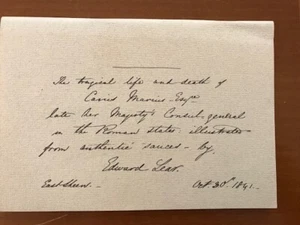 The tragical life and death of
Caius Marius Esqre
late her Majesty's Consul-general
in the Roman states illustrated
from authentic sauces - by
Edward Lear.
East Sheen. - Oct. 30th. 1841. -